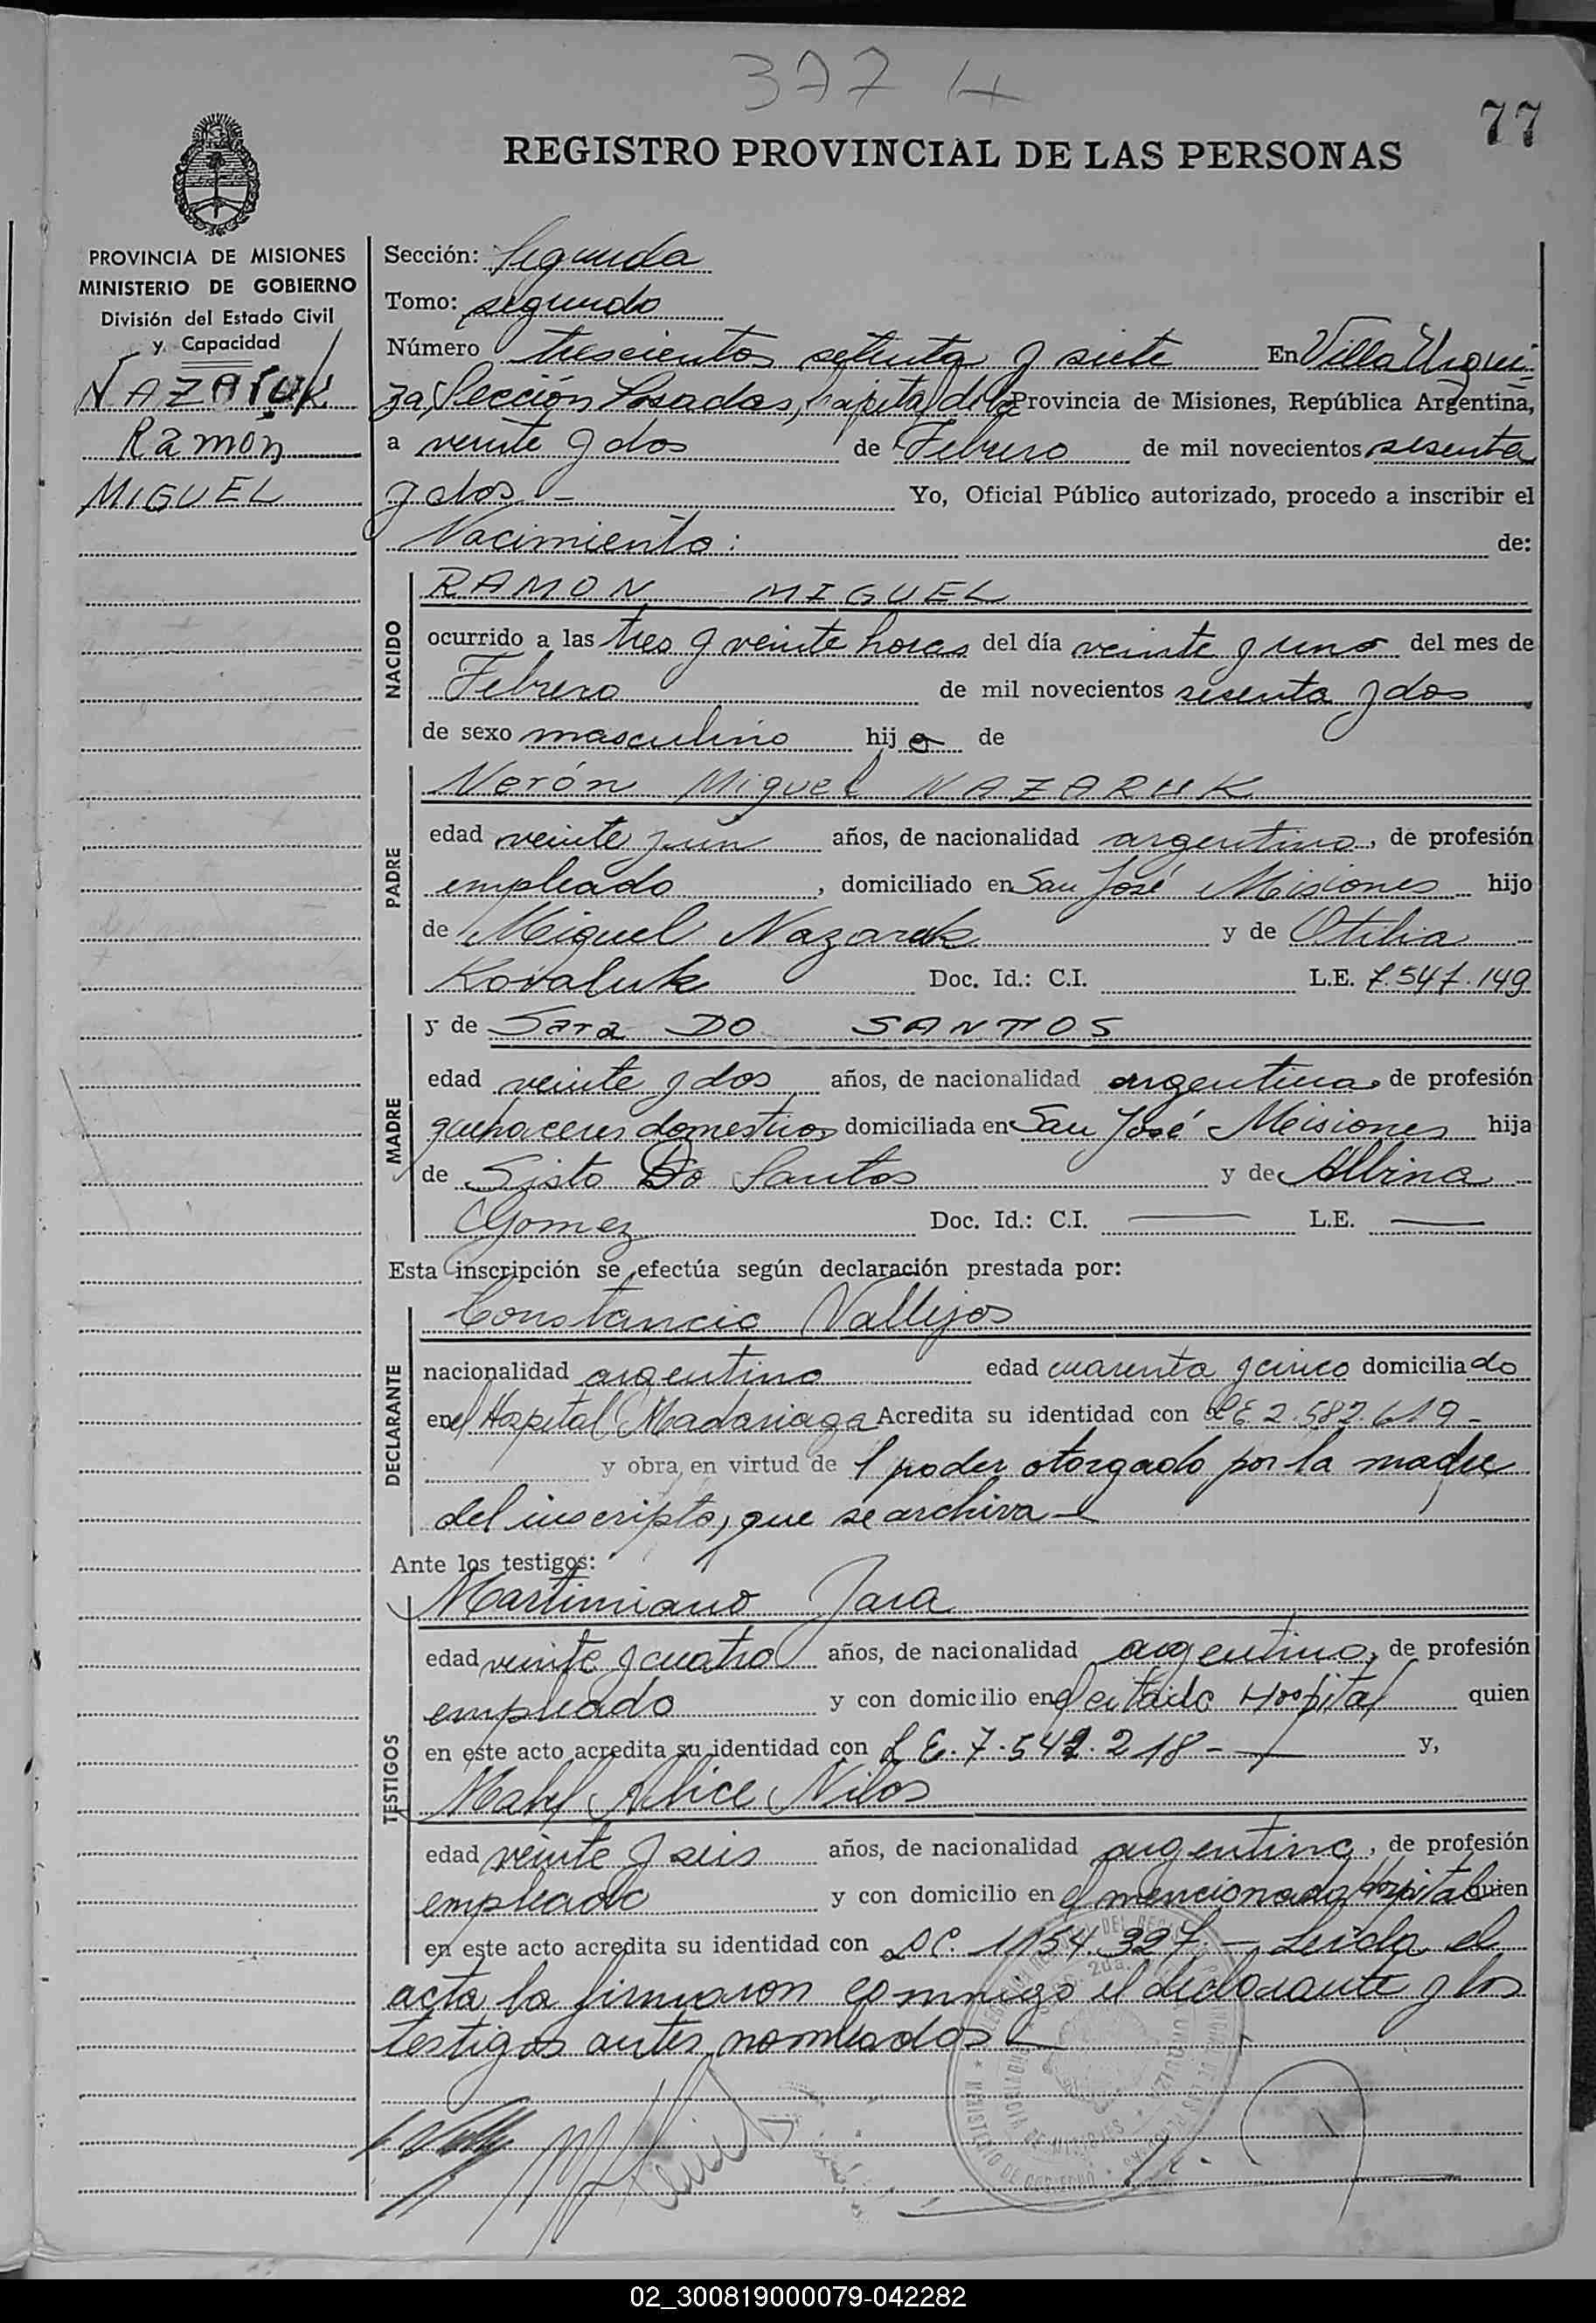 377 4
77
REGISTRO PROVINCIAL DE LAS PERSONAS
PROVINCIA DE MISIONES
MINISTERIO DE GOBIERNO
División del Estado Civil
y Capacidad
NAZARUK
Ramón
MIGUEL
Sección: Segunda
Tomo: segundo
Número trescientos setenta y siete En Villa Urqui-
za, Sección Posadas, Capital de la Provincia de Misiones, República Argentina,
a veinte y dos de Febrero de mil novecientos sesenta
y dos - Yo, Oficial Público autorizado, procedo a inscribir el
Nacimiento: de:
NACIDO
RAMON MIGUEL
ocurrido a las tres y veinte horas del día veinte y uno del mes de
Febrero de mil novecientos sesenta y dos
de sexo masculino hijo de
PADRE
Nerón Miguel NAZARUK
edad veinte y un años, de nacionalidad argentino, de profesión
empleado, domiciliado en San José Misiones hijo
de Miguel Nazaruk y de Otilia
Kovaluk Doc. Id.: C.I. L.E. 7.547.149
MADRE
y de Sara DO SANTOS
edad veinte y dos años, de nacionalidad argentina de profesión
quehaceres domesticos domiciliada en San José Misiones hija
de Sisto Do Santos y de Albina
Gomez Doc. Id.: C.I. — L.E. —
Esta inscripción se efectúa según declaración prestada por:
DECLARANTE
Constancio Vallejos
nacionalidad argentino edad cuarenta y cinco domiciliado
en el Hospital Madariaga Acredita su identidad con L.E. 2.582.619-
y obra en virtud de l poder otorgado por la madre
del inscripto, que se archiva -
Ante los testigos:
TESTIGOS
Martimiano Jara
edad veinte y cuatro años, de nacionalidad argentino, de profesión
empleado y con domicilio en el citado Hospital quien
en este acto acredita su identidad con L.E. 7.542.218- y,
Mabel Alice Nilos
edad veinte y seis años, de nacionalidad argentina, de profesión
empleada y con domicilio en el mencionado Hospital quien
en este acto acredita su identidad con 1154.327 - Leida el
acta la firmaron conmigo el declarante y los
testigos antes nombrados -
02_300819000079-042282